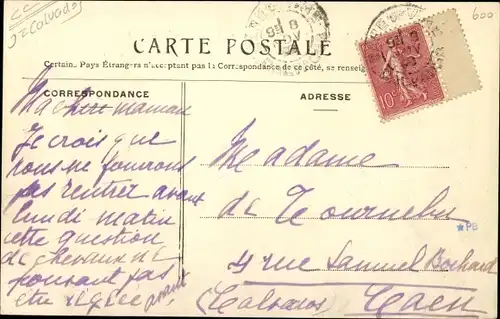 Calvados
600
CARTE POSTALE
Certains Pays Étrangers n'acceptant pas la Correspondance de ce côté, se renseig
CORRESPONDANCE
ADRESSE
10c
Ma chère maman
Je crois que
nous ne pourrons
pas rentrer avant
lundi matin
cette question
de chevaux ne
pouvant pas
être réglée avant
Madame
de Tournebu
4 rue Samuel Bochard
(Calvados) Caen
★PB